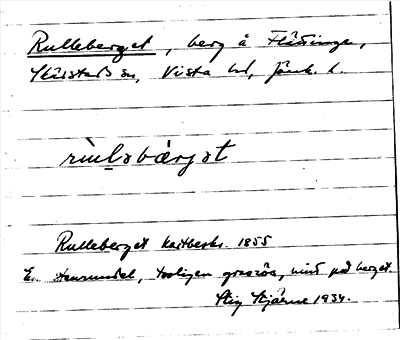 Rulleberget, berg å Flättinge,
Skärstads sn, Vista hd, Jönk. l.
rùḷəbæ̀rjət
Rulleberget kartbeskr. 1855
E. stenrundel, troligen gravrös, mitt på berget.
Stig Stjärne 1934.